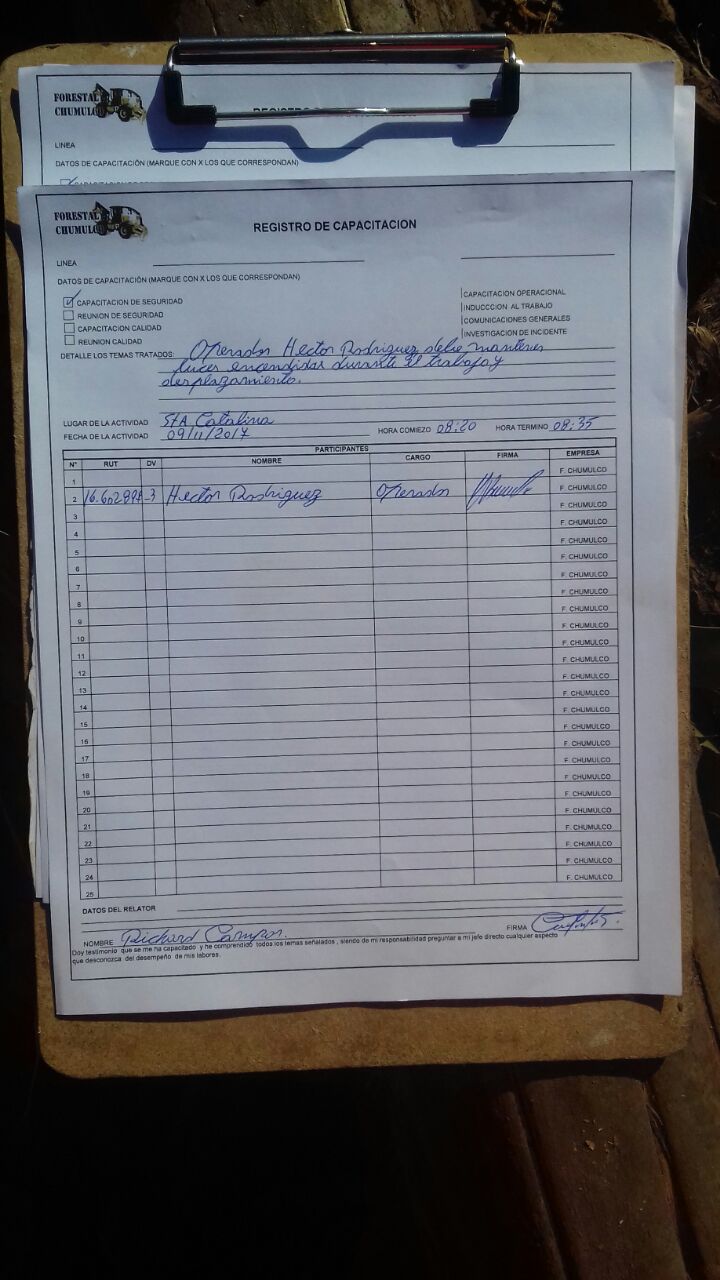 FORESTAL
CHUMULCO
LINEA
DATOS DE CAPACITACIÓN (MARQUE CON X LOS QUE CORRESPONDAN)
FORESTAL
CHUMULCO
REGISTRO DE CAPACITACION
LINEA
DATOS DE CAPACITACIÓN (MARQUE CON X LOS QUE CORRESPONDAN)
CAPACITACION DE SEGURIDAD CAPACITACION OPERACIONAL
REUNION DE SEGURIDAD INDUCCCION AL TRABAJO
CAPACITACION CALIDAD COMUNICACIONES GENERALES
REUNION CALIDAD INVESTIGACION DE INCIDENTE
DETALLE LOS TEMAS TRATADOS: Operador Hector Rodriguez debe mantener
luces encendidas durante el trabajo y
desplazamiento.
LUGAR DE LA ACTIVIDAD StA Catalina
FECHA DE LA ACTIVIDAD 09/11/2017 HORA COMIEZO 08:20 HORA TERMINO 08:35
PARTICIPANTES
N° RUT DV NOMBRE CARGO FIRMA EMPRESA
1 F. CHUMULCO
2 -3 Hector Rodriguez Operador F. CHUMULCO
3 F. CHUMULCO
4 F. CHUMULCO
5 F. CHUMULCO
6 F. CHUMULCO
7 F. CHUMULCO
8 F. CHUMULCO
9 F. CHUMULCO
10 F. CHUMULCO
11 F. CHUMULCO
12 F. CHUMULCO
13 F. CHUMULCO
14 F. CHUMULCO
15 F. CHUMULCO
16 F. CHUMULCO
17 F. CHUMULCO
18 F. CHUMULCO
19 F. CHUMULCO
20 F. CHUMULCO
21 F. CHUMULCO
22 F. CHUMULCO
23 F. CHUMULCO
24 F. CHUMULCO
25 F. CHUMULCO
DATOS DEL RELATOR
NOMBRE Richard Campos. FIRMA
Doy testimonio que se me ha capacitado y he comprendido todos los temas señalados , siendo de mi responsabilidad preguntar a mi jefe directo cualquier aspecto
que desconozca del desempeño de mis labores.